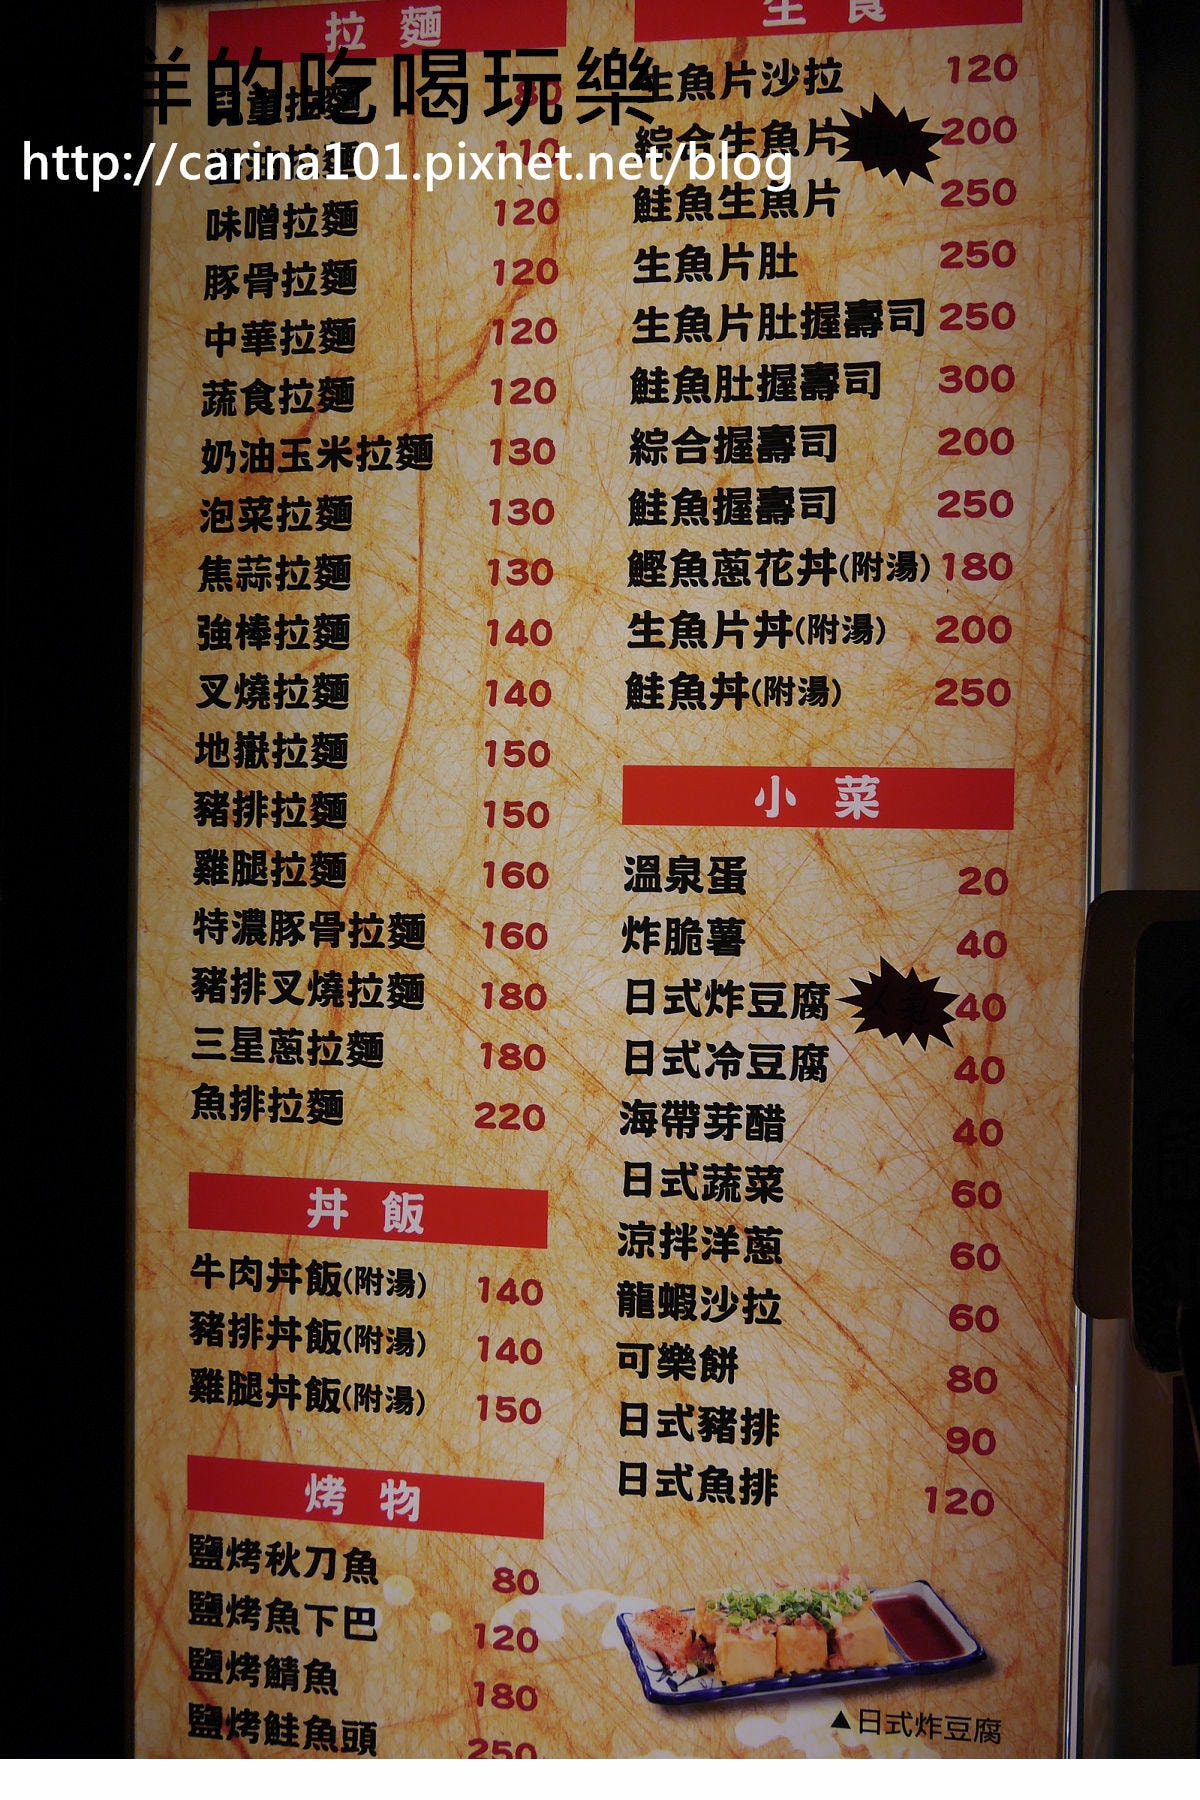 拉麵
樣的吃喝玩樂
http://carina101.pixnet.net/blog
兒童拉麵 80
醬油拉麵 110
味噌拉麵 120
豚骨拉麵 120
中華拉麵 120
蔬食拉麵 120
奶油玉米拉麵 130
泡菜拉麵 130
焦蒜拉麵 130
強棒拉麵 140
叉燒拉麵 140
地嶽拉麵 150
豬排拉麵 150
雞腿拉麵 160
特濃豚骨拉麵 160
豬排叉燒拉麵 180
三星蔥拉麵 180
魚排拉麵 220
丼飯
牛肉丼飯(附湯) 140
豬排丼飯(附湯) 140
雞腿丼飯(附湯) 150
烤物
鹽烤秋刀魚 80
鹽烤魚下巴 120
鹽烤鯖魚 180
鹽烤鮭魚頭 250
生食
生魚片沙拉 120
綜合生魚片 200
鮭魚生魚片 250
生魚片肚 250
生魚片肚握壽司 250
鮭魚肚握壽司 300
綜合握壽司 200
鮭魚握壽司 250
鰹魚蔥花丼(附湯) 180
生魚片丼(附湯) 200
鮭魚丼(附湯) 250
小菜
溫泉蛋 20
炸脆薯 40
日式炸豆腐 人氣 40
日式冷豆腐 40
海帶芽醋 40
日式蔬菜 60
涼拌洋蔥 60
龍蝦沙拉 60
可樂餅 80
日式豬排 90
日式魚排 120
▲日式炸豆腐